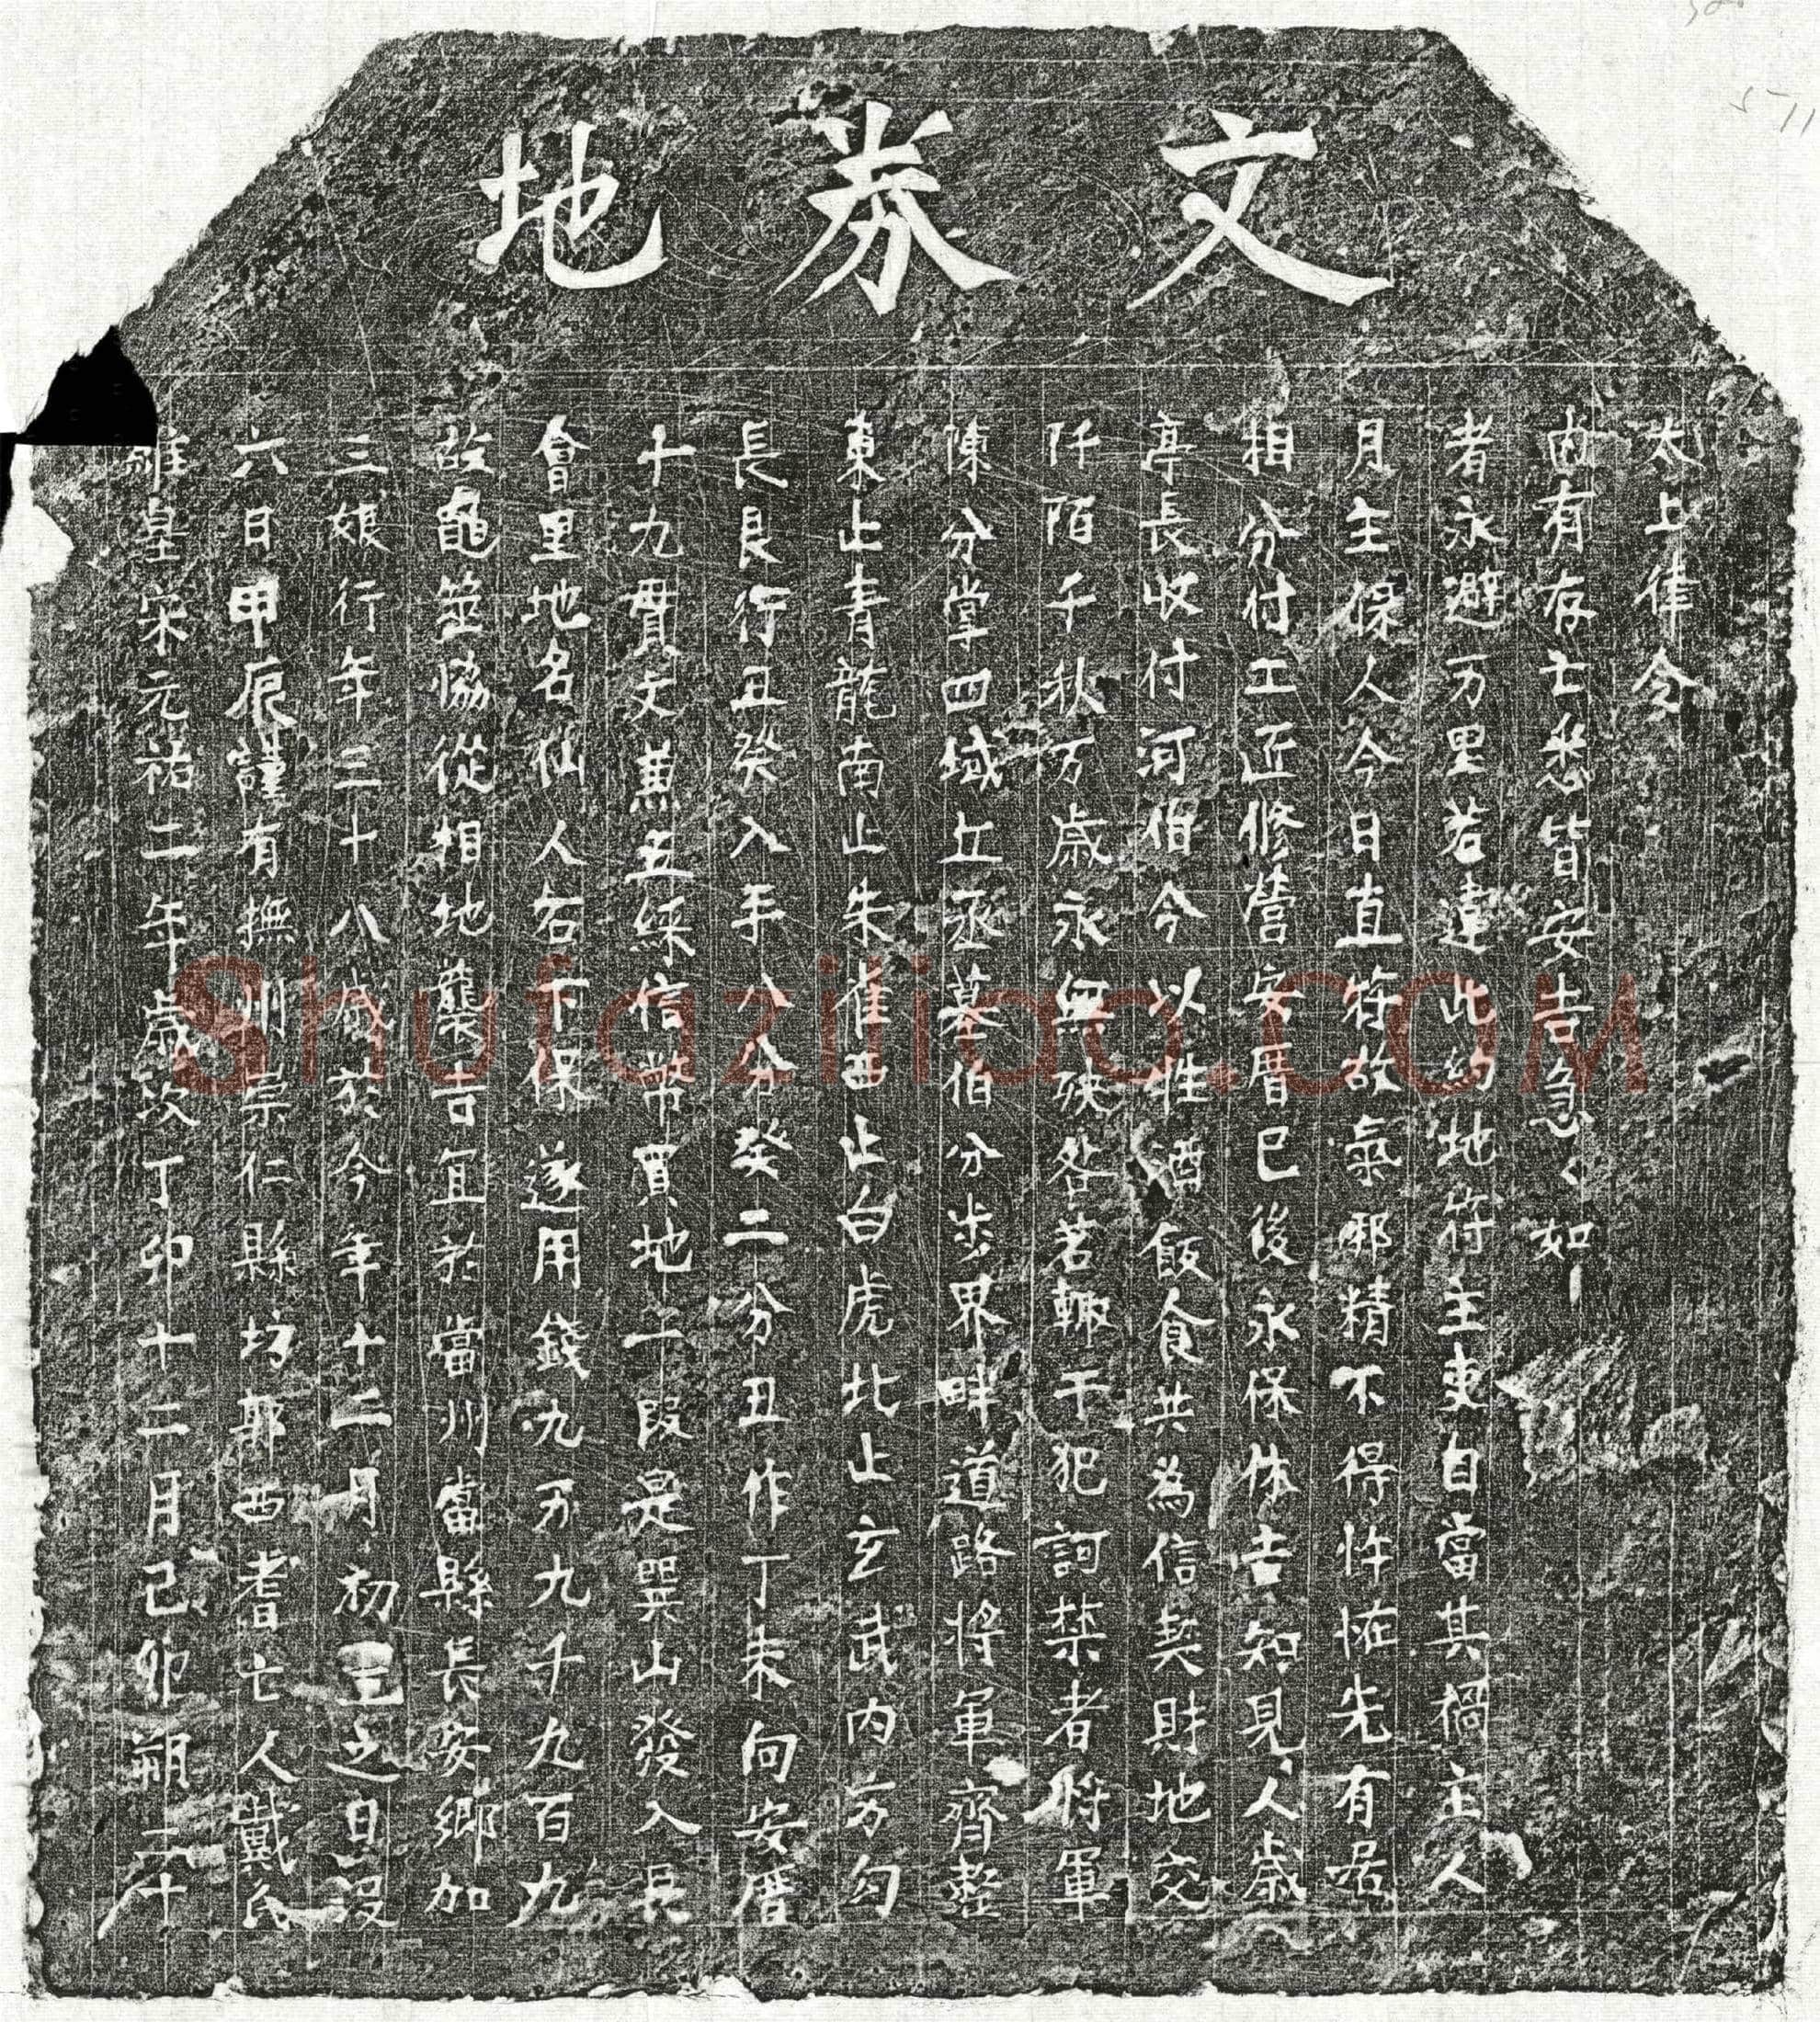 地券文
維皇宋元祐二年歲次丁卯十二月己卯朔二十
六日甲辰謹有撫州崇仁縣坊郭西耆亡人戴氏
三娘行年三十八歲於今年十二月初之日沒
故龜筮協從相地襲吉宜於當州當縣長安鄉加
會里地名仙人石下保遂用錢九万九千九百九
十九貫文兼五綵信幣買地一段是巽山發入長
長艮行丑癸入手八分癸二分丑作丁未向安厝
東止青龍南止朱雀西止白虎北止玄武内方勾
陳分掌四域丘丞墓伯分步界畔道路將軍齊整
阡陌千秋万歲永無殃咎若輙干犯訶禁者將軍
亭長收付河伯今以牲酒飯食共為信契財地交
相分付工匠修營安厝已後永保休吉知見人歲
月主保人今日直符故氣邪精不得忤恡先有居
者永避万里若違此約地符主吏自當其禍主人
内有存亡悉皆安吉急々如
太上律令
511
Shufaziliao.com